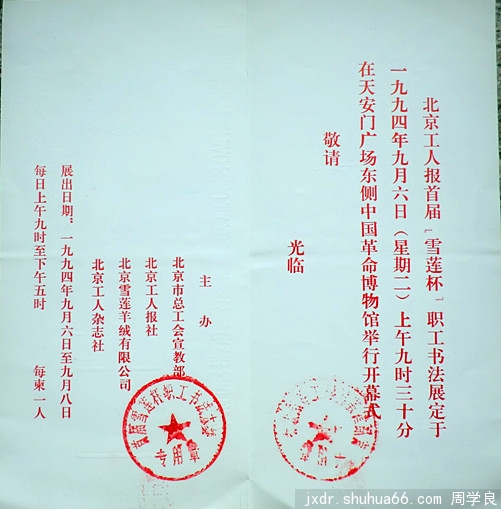 北京工人报首届﹁雪莲杯﹂职工书法展定于
一九九四年九月六日（星期二）上午九时三十分
在天安门广场东侧中国革命博物馆举行开幕式
敬请
光临
主办
北京市总工会宣教部
北京工人报社
北京雪莲羊绒有限公司
北京工人杂志社
展出日期：一九九四年九月六日至九月八日
每日上午九时至下午五时 每柬一人
首届雪莲杯职工书法大赛
专用章
jxdr.shuhua66.com 周学良